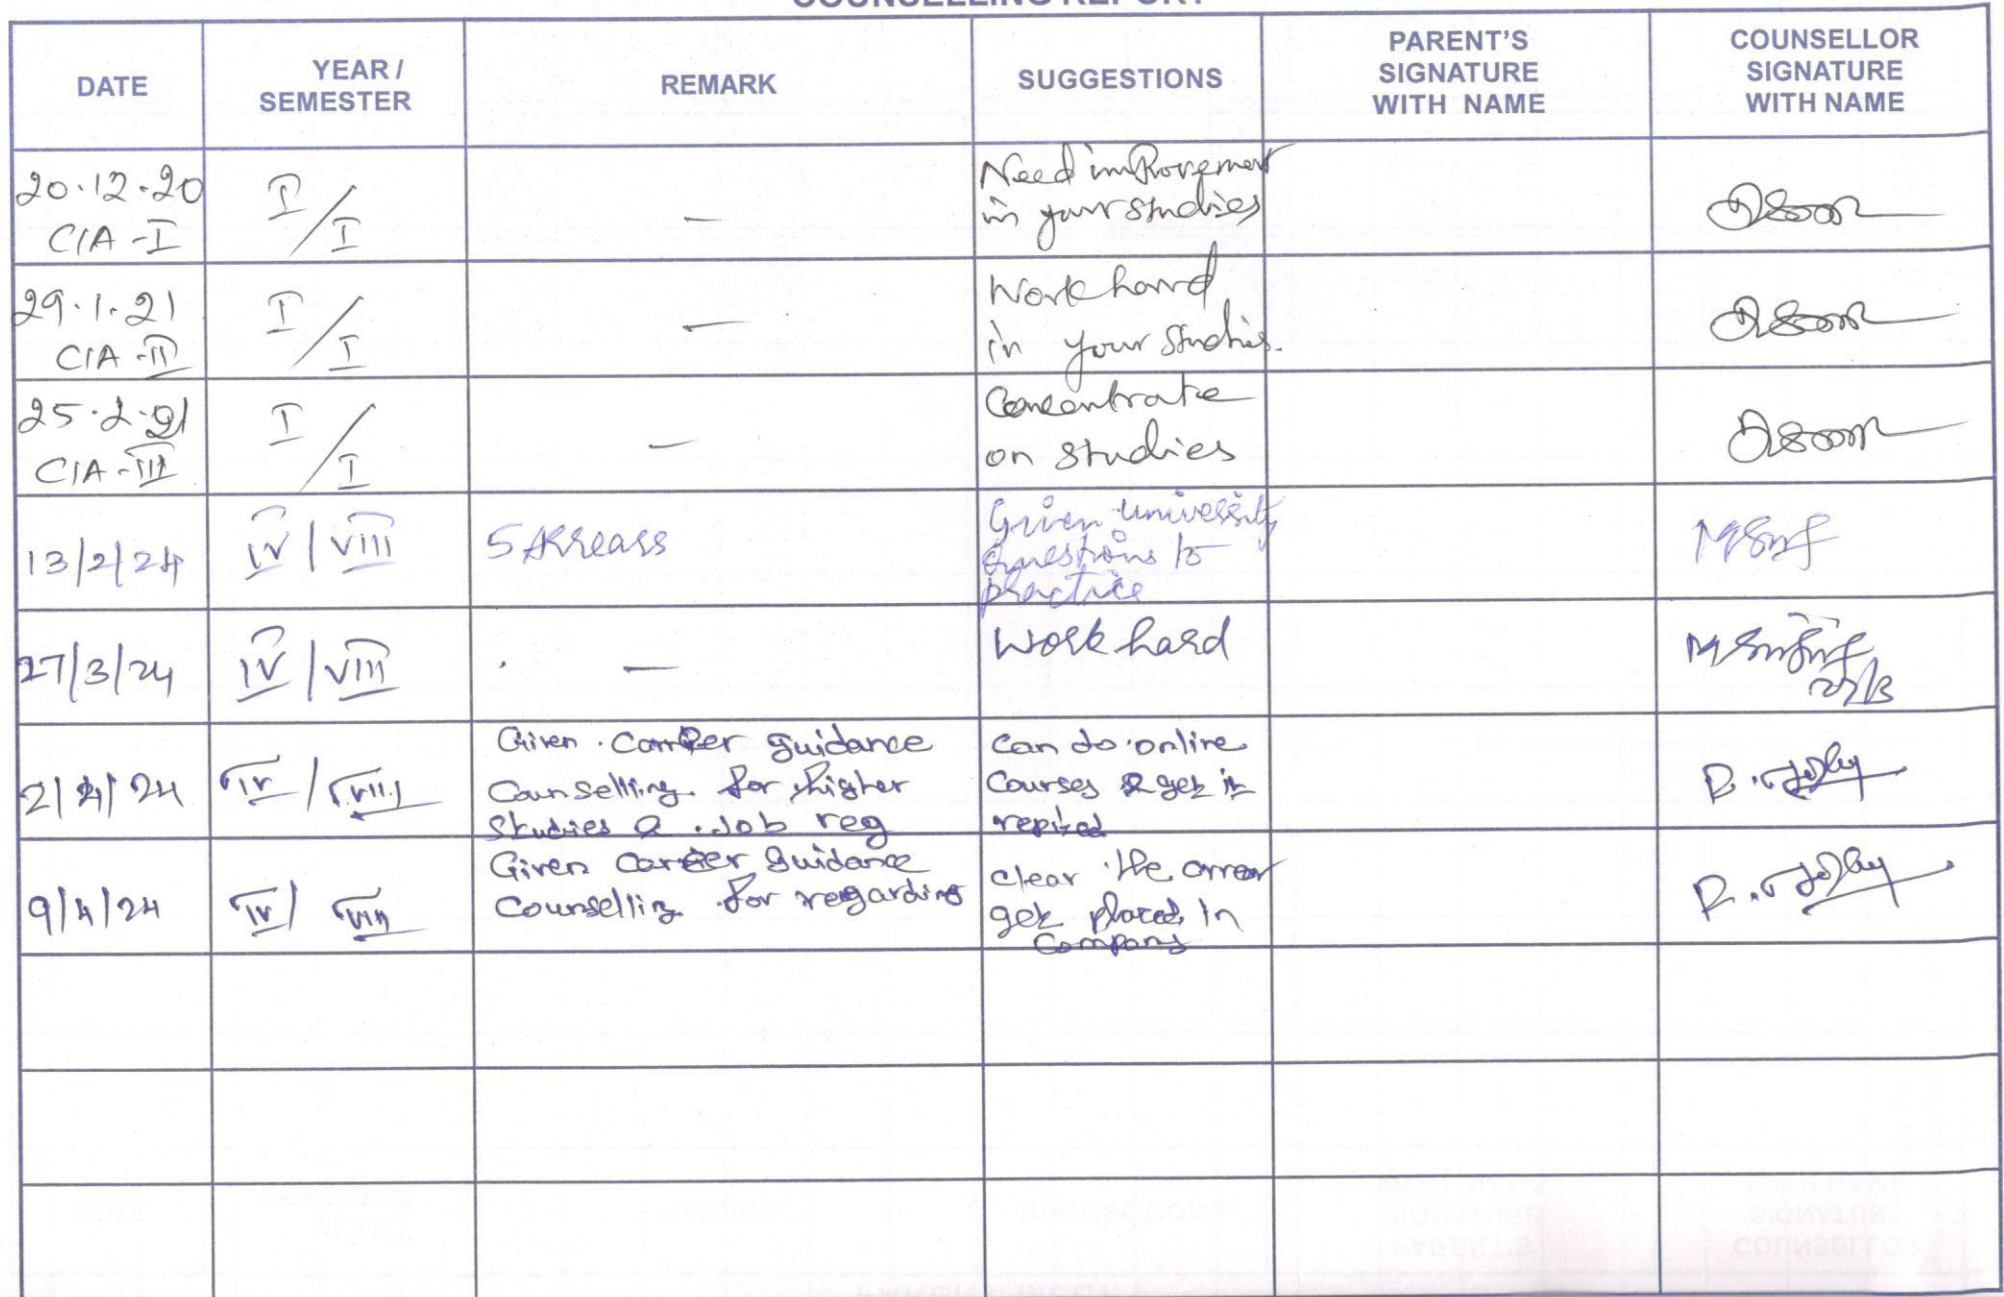 COUNSELLING REPORT
DATE
YEAR /
SEMESTER
REMARK
SUGGESTIONS
PARENT'S
SIGNATURE
WITH NAME
COUNSELLOR
SIGNATURE
WITH NAME
20.12.20
CIA - I
I / I
—
Need improvement
in your studies
29.1.21
CIA - II
I / I
—
Work hard
in your studies.
25.2.21
CIA - III
I / I
—
Concentrate
on studies
13/2/24
IV / VIII
5 Arrears
Given university
questions to
practice
27/3/24
IV / VIII
—
Work hard
2/4/24
IV / VIII
Given Carrier guidance
Counselling for higher
Studies & Job reg
can do online
Courses & get it
9/4/24
IV / VIII
Given Carrier guidance
Counselling for regarding
clear the arrear
get placed in
Company